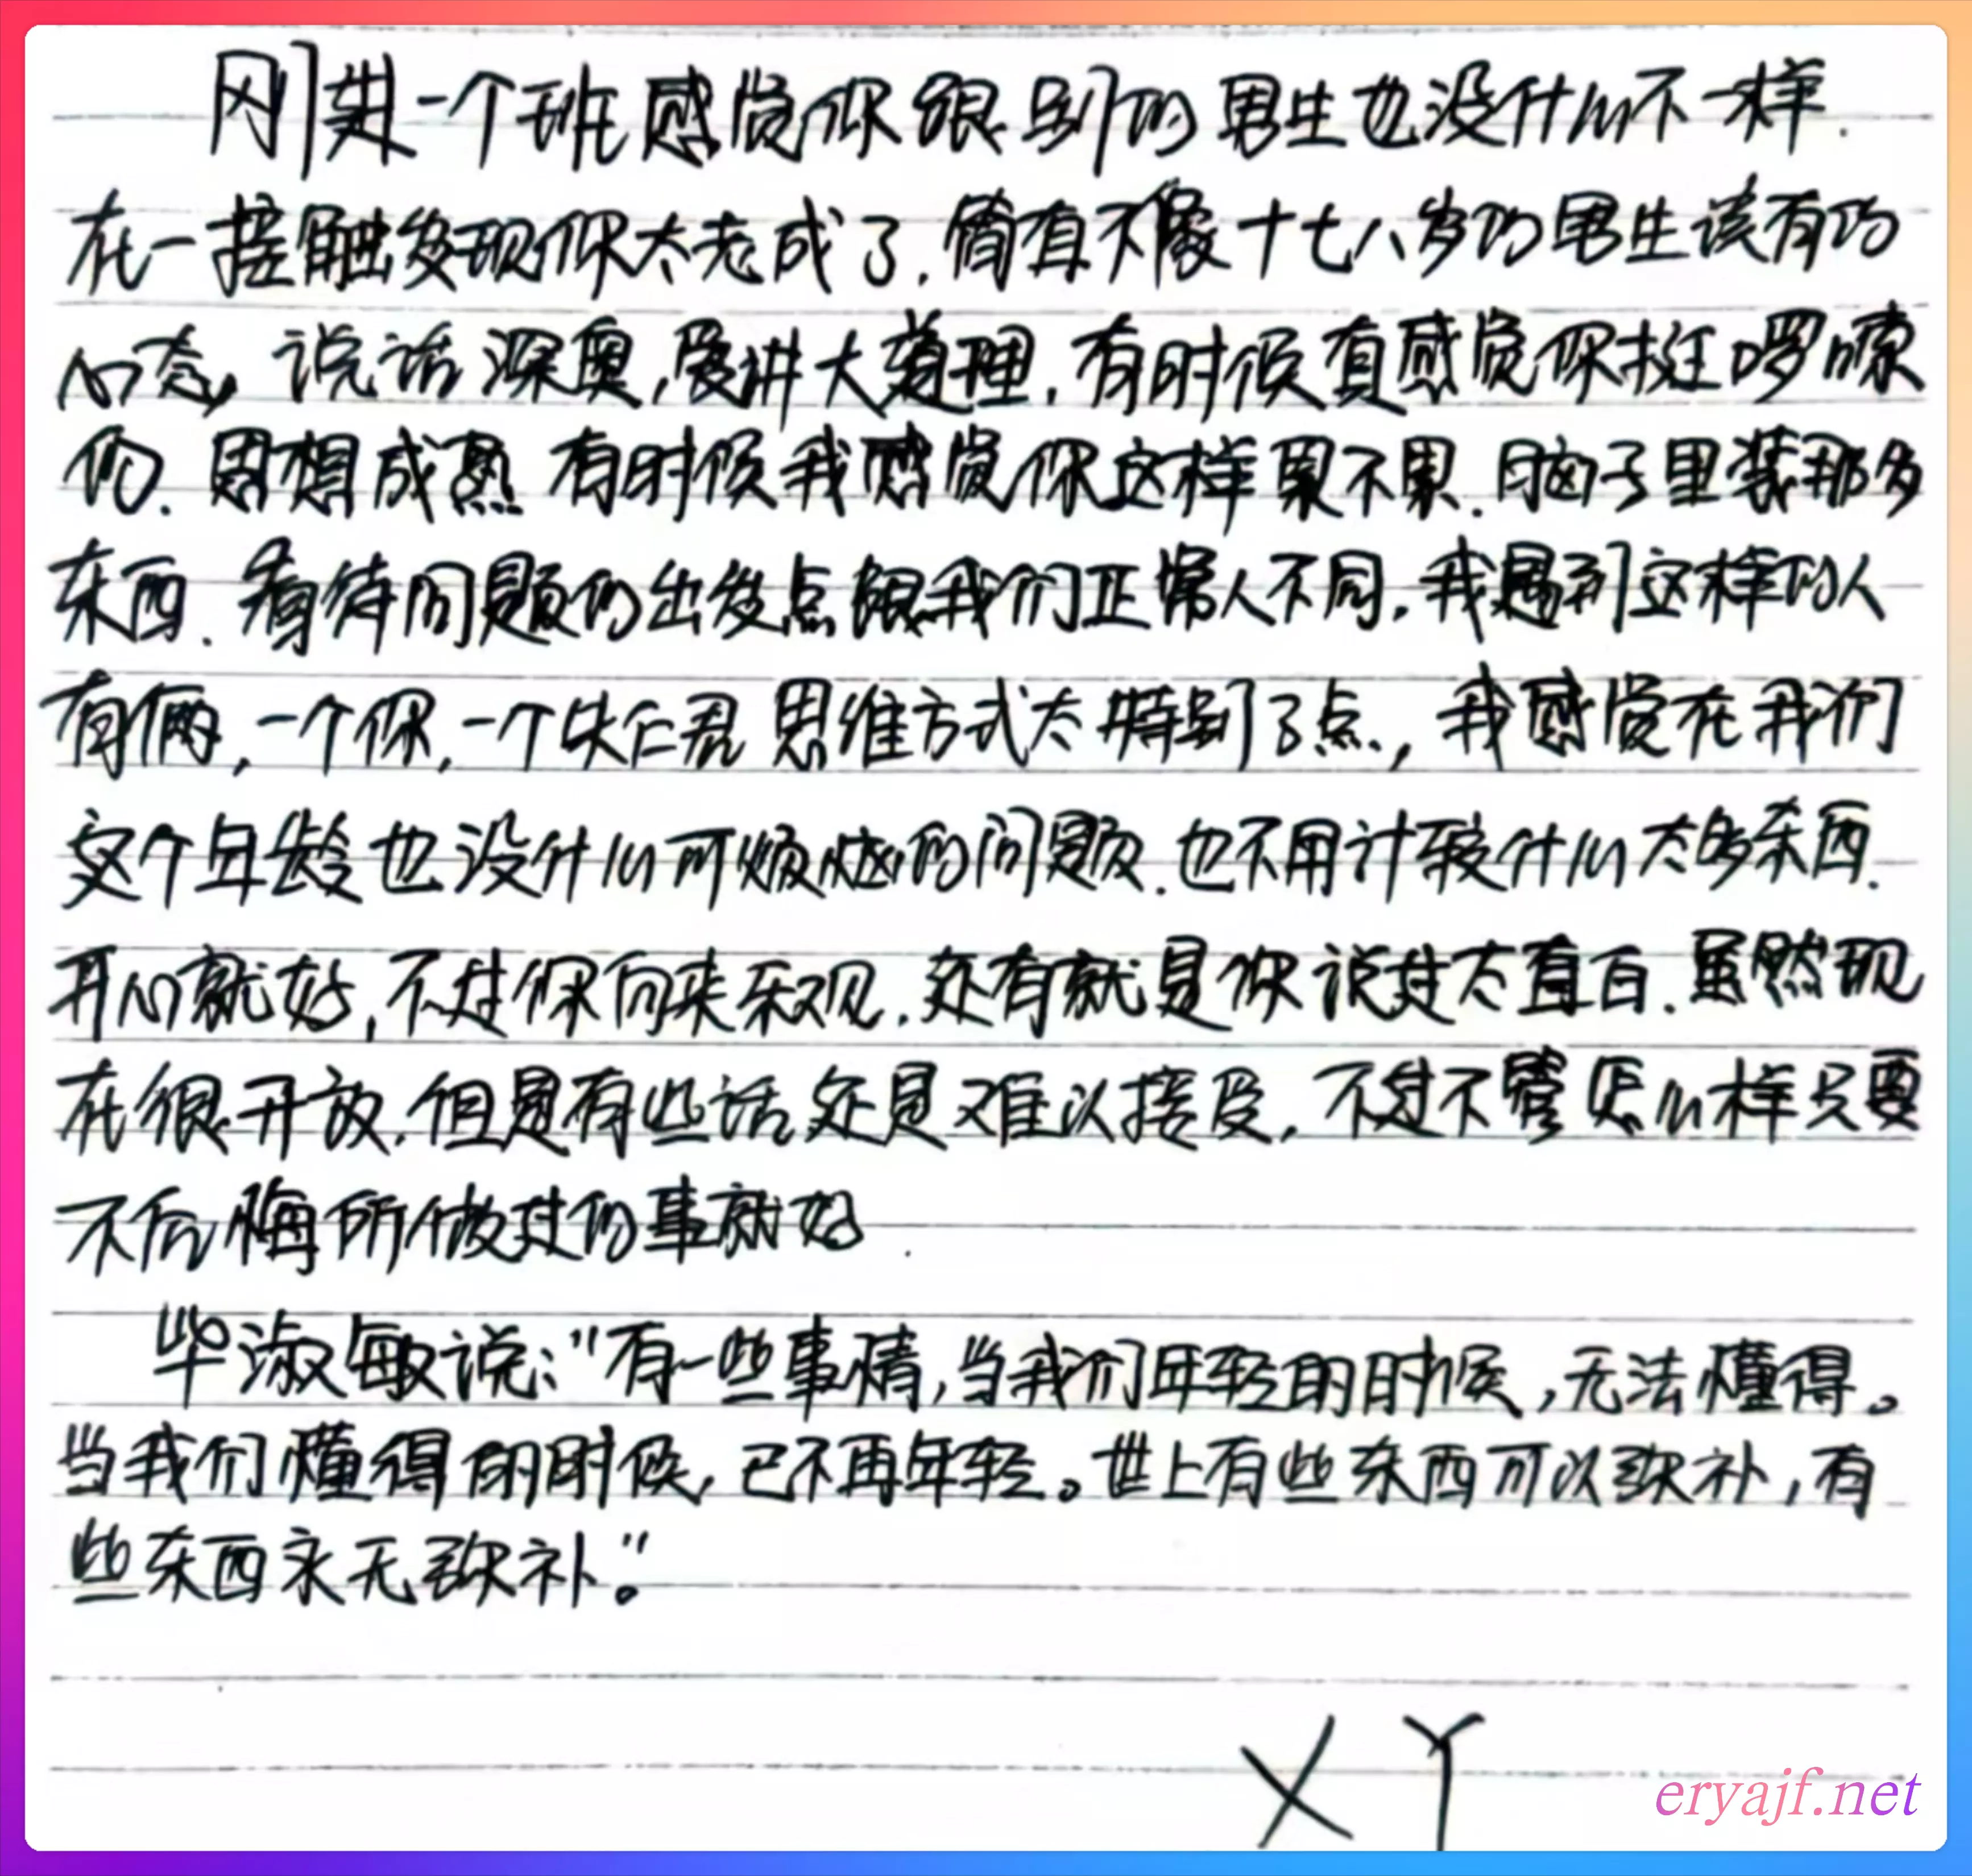 刚进一个班感觉你跟别的男生也没什么不一样.
在一接触发现你太老成了,简直不像十七八岁的男生该有的
心态,说话深奥,爱讲大道理,有时候真感觉你挺啰嗦
的.思想成熟 有时候我感觉你这样累不累.脑子里装那多
东西.看待问题的出发点跟我们正常人不同,我遇到这样的人
有俩,一个你,一个 思维方式太特别了点,我感觉在我们
这个年龄也没什么可烦恼的问题.也不用计较什么太多东西.
开心就好,不过你向来乐观.还有就是你说过太直白.虽然现
在很开放.但是有些话还是难以接受,不过不管怎么样只要
不后悔所做过的事就好.
毕淑敏说:"有一些事情,当我们年轻的时候,无法懂得。
当我们懂得的时候,已不再年轻。世上有些东西可以弥补,有
些东西永无弥补。"
XY
eryajf.net